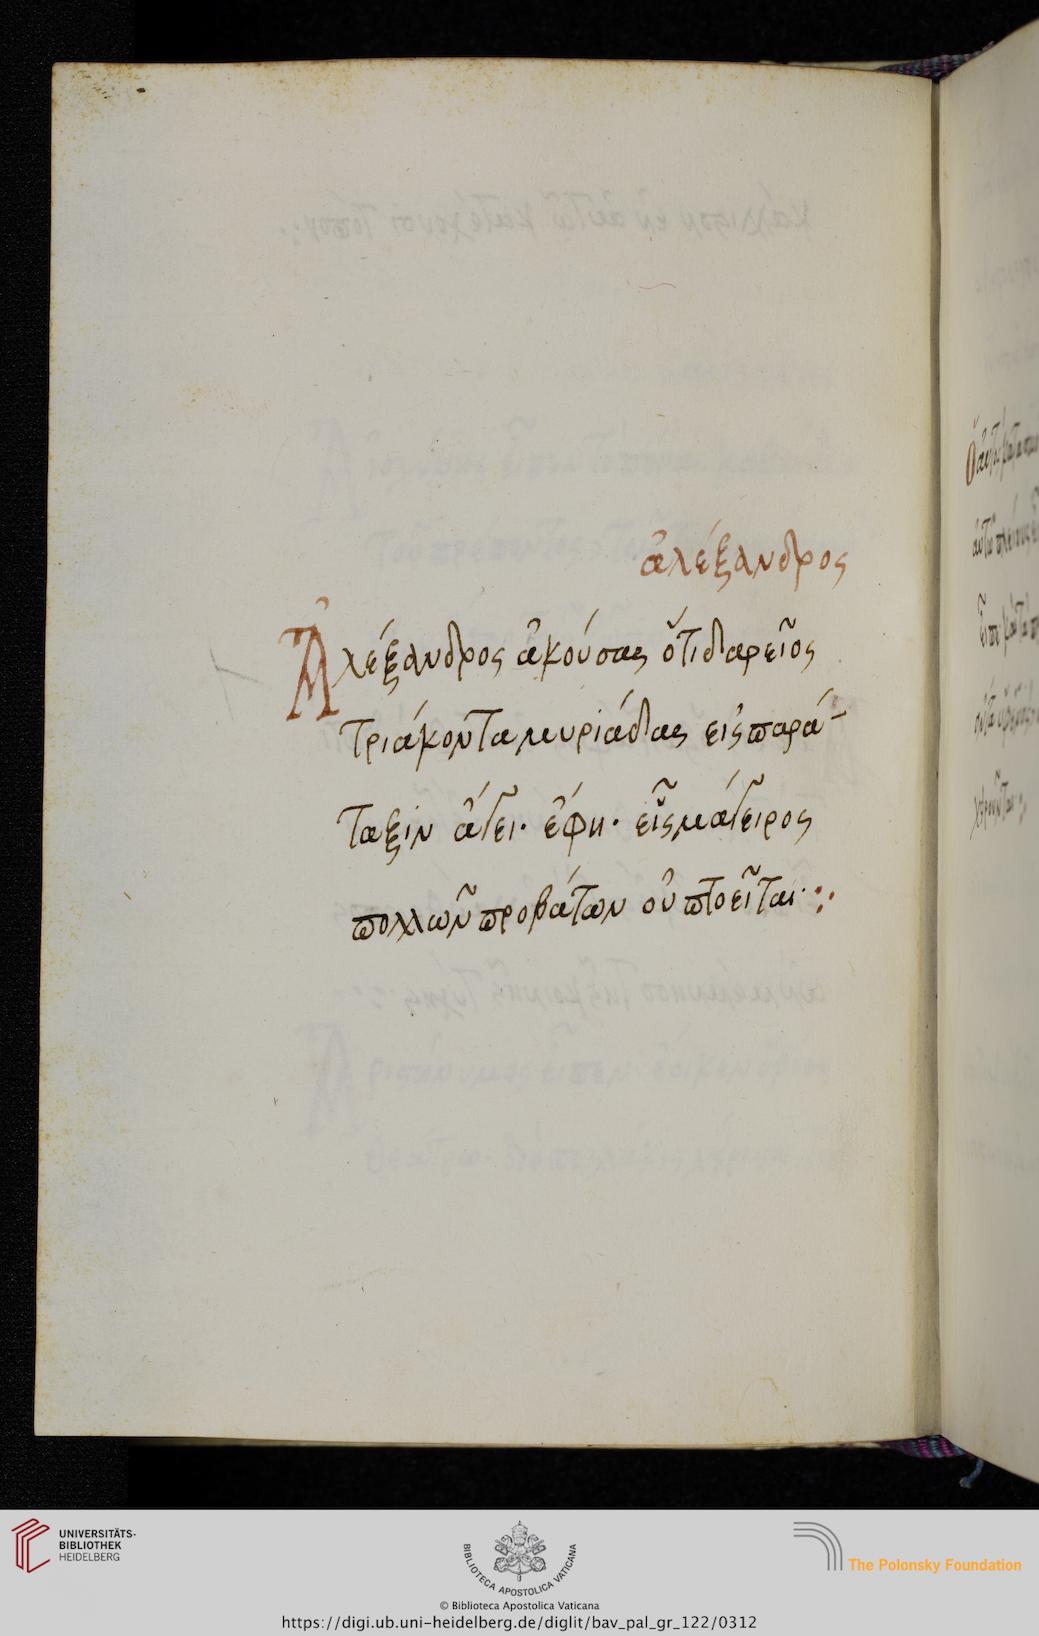 ἀλέξανδρος
Ἀλέξανδρος ἀκούσας ὅτι δαρεῖος
τριάκοντα μυριάδας εἰς παρά-
ταξιν ἄγει· ἔφη· εἷς μάγειρος
πολλῶν προβάτων οὐ πτοεῖται·:·
UNIVERSITÄTS-
BIBLIOTHEK
HEIDELBERG
BIBLIOTECA APOSTOLICA VATICANA
The Polonsky Foundation
© Biblioteca Apostolica Vaticana
https://digi.ub.uni-heidelberg.de/diglit/bav_pal_gr_122/0312